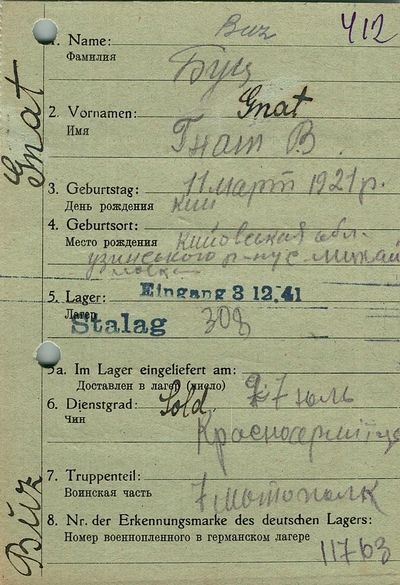 Buz 412
1. Name:
Фамилия Буц
Gnat
2. Vornamen: Gnat
Имя Гнат В.
3. Geburtstag: 11 март 1921 р.
День рождения
4. Geburtsort:
Место рождения Кийовская обл.
узинського р-н с.
5. Lager: Eingang 3 12. 41
Лагерь
Stalag 308
5a. Im Lager eingeliefert am:
Доставлен в лагер (число) 27 юль
6. Dienstgrad: Sold.
Чин
7. Truppenteil:
Воинская часть 7 мотополк
Buz
8. Nr. der Erkennungsmarke des deutschen Lagers:
Номер военнопленного в германском лагере
11763